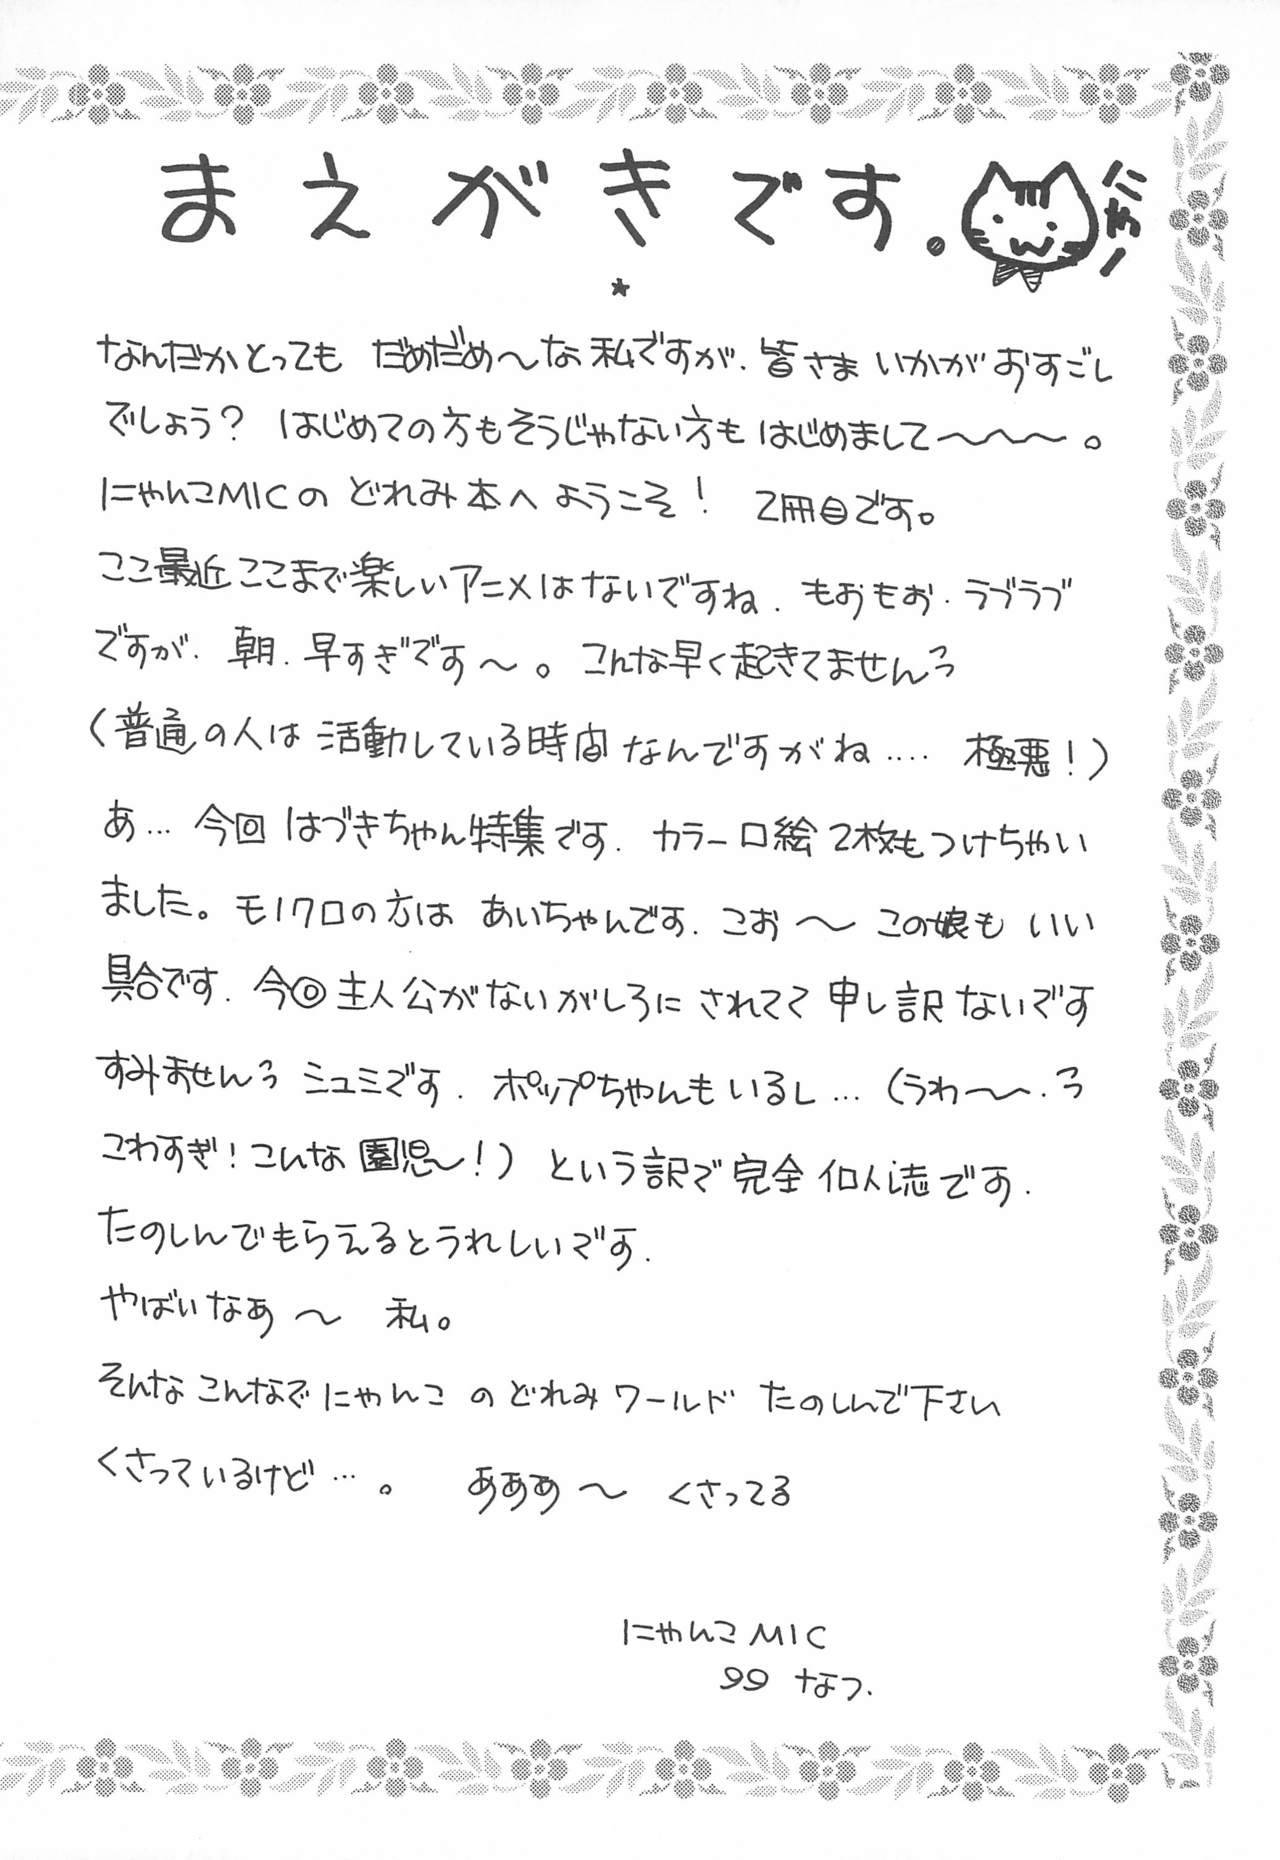 まえがきです.
にゃー
なんだかとっても だめだめ〜な私ですが、皆さま いかがおすごし
でしょう? はじめての方もそうじゃない方も はじめまして〜〜〜。
にゃんこMICの どれみ本へ ようこそ! 2冊目です。
ここ最近ここまで楽しいアニメはないですね. もおもお・ラブラブ
ですが. 朝. 早すぎです〜。 こんな早く起きてませんっ
(普通の人は 活動している時間なんですがね.... 極悪!)
あ... 今回 はづきちゃん特集です. カラー口絵2枚もつけちゃい
ました。モノクロの方は あいちゃんです. こお〜 この娘も いい
具合です. 今回主人公がないがしろに されてて 申し訳ないです
すみませんっ シュミです. ポップちゃんもいるし... (うわ〜〜.っ
こわすぎ! こんな 園児〜!) という訳で 完全 個人誌です.
たのしんでもらえるとうれしいです.
やばいなあ〜 私。
そんなこんなで にゃんこ の どれみ ワールド たのしんで下さい
くさっているけど...。 あああ〜 くさってる
にゃんこ MIC
99 なつ.